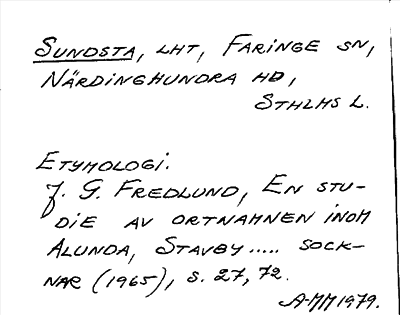 SUNDSTA, LHT, FARINGE SN,
NÄRDINGHUNDRA HD,
STHLMS L.
ETYMOLOGI.
J. G. FREDLUND, EN STU-
DIE AV ORTNAMNEN INOM
ALUNDA, STAVBY..... SOCK-
NAR (1965), S. 27, 72.
A-MM 1979.